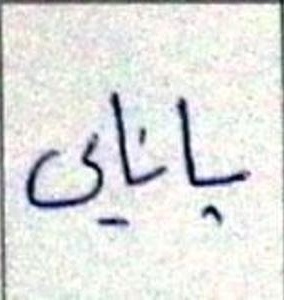 بانایی